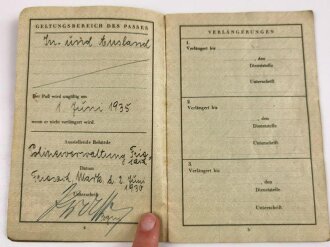 GELTUNGSBEREICH DES PASSES
In- und Ausland
Der Paß wird ungültig am
1. Juni 1935
wenn er nicht verlängert wird.
Ausstellende Behörde
Polizeiverwaltung
Datum
Mark, d. 2. Juni
1930
Unterschrift
VERLÄNGERUNGEN
1.
Verlängert bis
, den
Dienststelle
Unterschrift
2.
Verlängert bis
, den
Dienststelle
Unterschrift
3.
Verlängert bis
, den
Dienststelle
Unterschrift